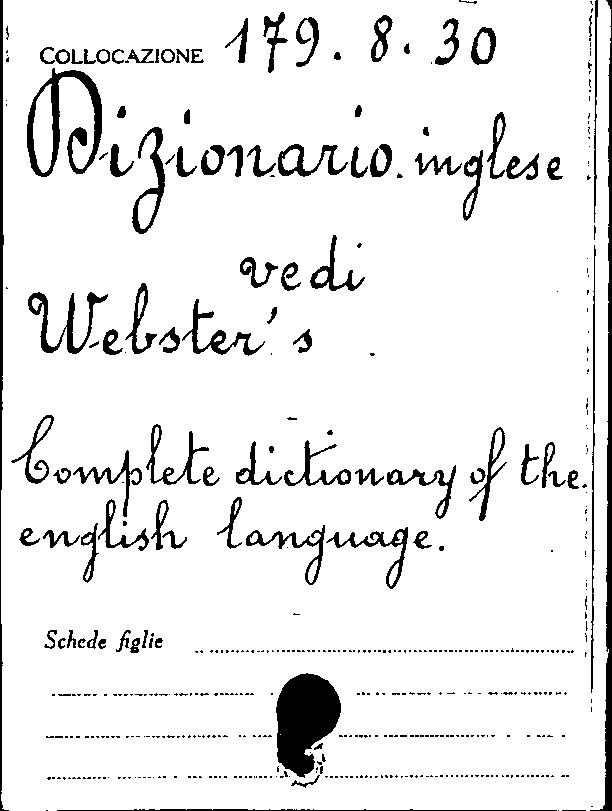 COLLOCAZIONE 179.8.30
Dizionario inglese
vedi
Webster's
Complete dictionary of the
english language.
Schede figlie